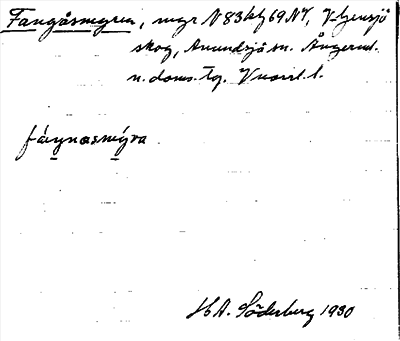 Fangåsmyren, myr N 83 kf 69 NV, V. Gensjö
skog, Anundsjö sn. Ångerml.
n. doms. tg. V norrl. l.
fáŋnasmýra
H A. Söderberg 1930